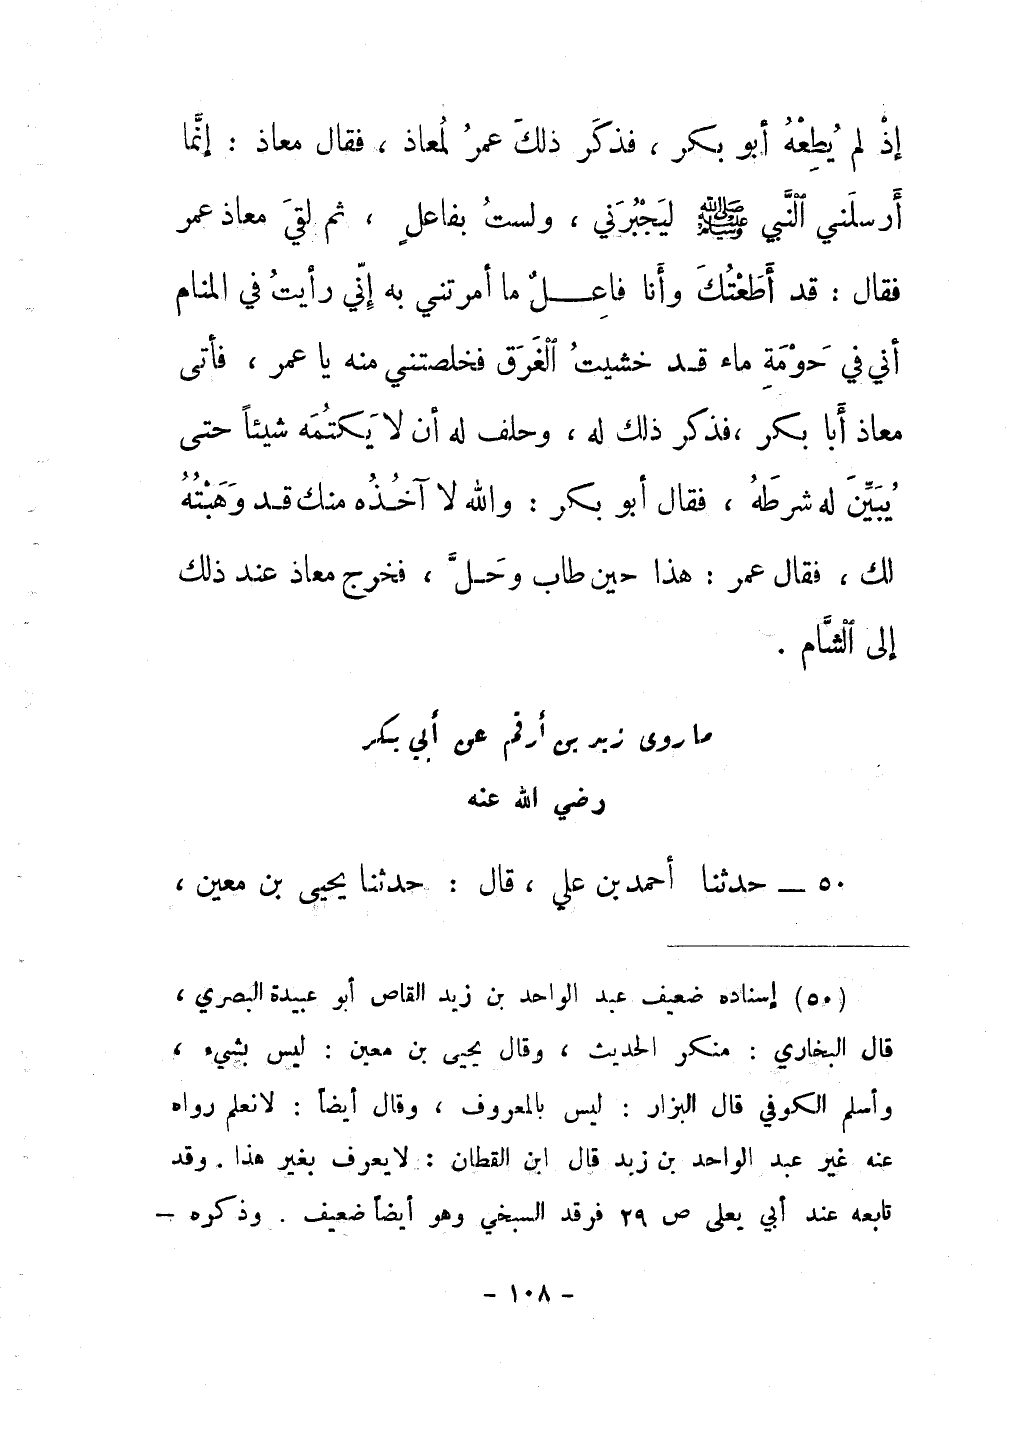 إذْ لم يُطِعْهُ أبو بكر ، فذكَر ذلكَ عمرُ لمُعاذ ، فقال معاذ : إنَّما
أَرسلَني ٱلنَّبي ﷺ ليَجْبُرَني ، ولستُ بفاعلٍ ، ثم لقيَ معاذ عمر
فقال : قد أَطَعْتُكَ وأَنا فاعِـــلٌ ما أمرتني به إنّي رأيتُ في المنام
أني في حَوْمَةِ ماء قـد خشيتُ ٱلْغَرَق فخلصتني منه يا عمر ، فأتى
معاذ أَبا بكر ،فذكر ذلك له ، وحلف له أن لا يَكتُمَه شيئاً حتى
يُبَيِّنَ له شرطَهُ ، فقال أبو بكر : والله لا آخُـذُه منك قـد وَهَبْتُهُ
لك ، فقال عمر : هذا حين طاب وحَـلَّ ، فخرج معاذ عند ذلك
إلى ٱلشَّام .
ما روى زيد بن أرقم عن أبي بكر
رضي الله عنه
٥٠ ــ حدثنا أحمد بن علي ، قال : حدثنا يحيى بن معين ،
(٥٠) إسناده ضعيف عبد الواحد بن زيد القاص أبو عبيدة البصري ،
قال البخاري : منكر الحديث ، وقال يحيى بن معين : ليس بشيء ،
وأسلم الكوفي قال البزار : ليس بالمعروف ، وقال أيضاً : لانعلم رواه
عنه غير عبد الواحد بن زيد قال ابن القطان : لايعرف بغير هذا . وقد
تابعه عند أبي يعلى ص ٢٩ فرقد السبخي وهو أيضاً ضعيف . وذكره –
- ١٠٨ -